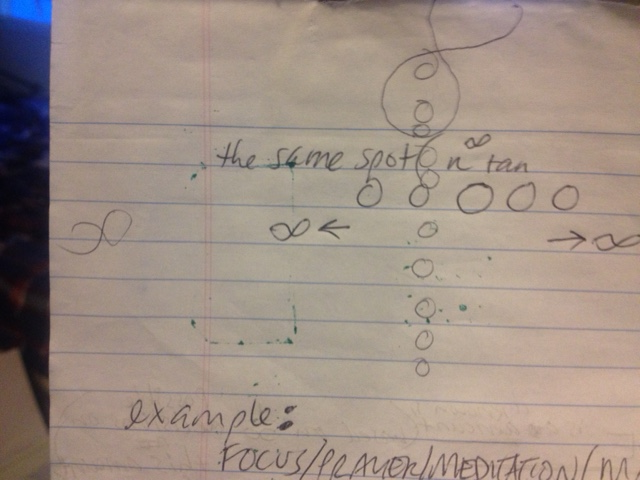 the same spot n∞ tan
∞ ∞ ← → ∞
example:
FOCUS/PRAYER/MEDITATION/M